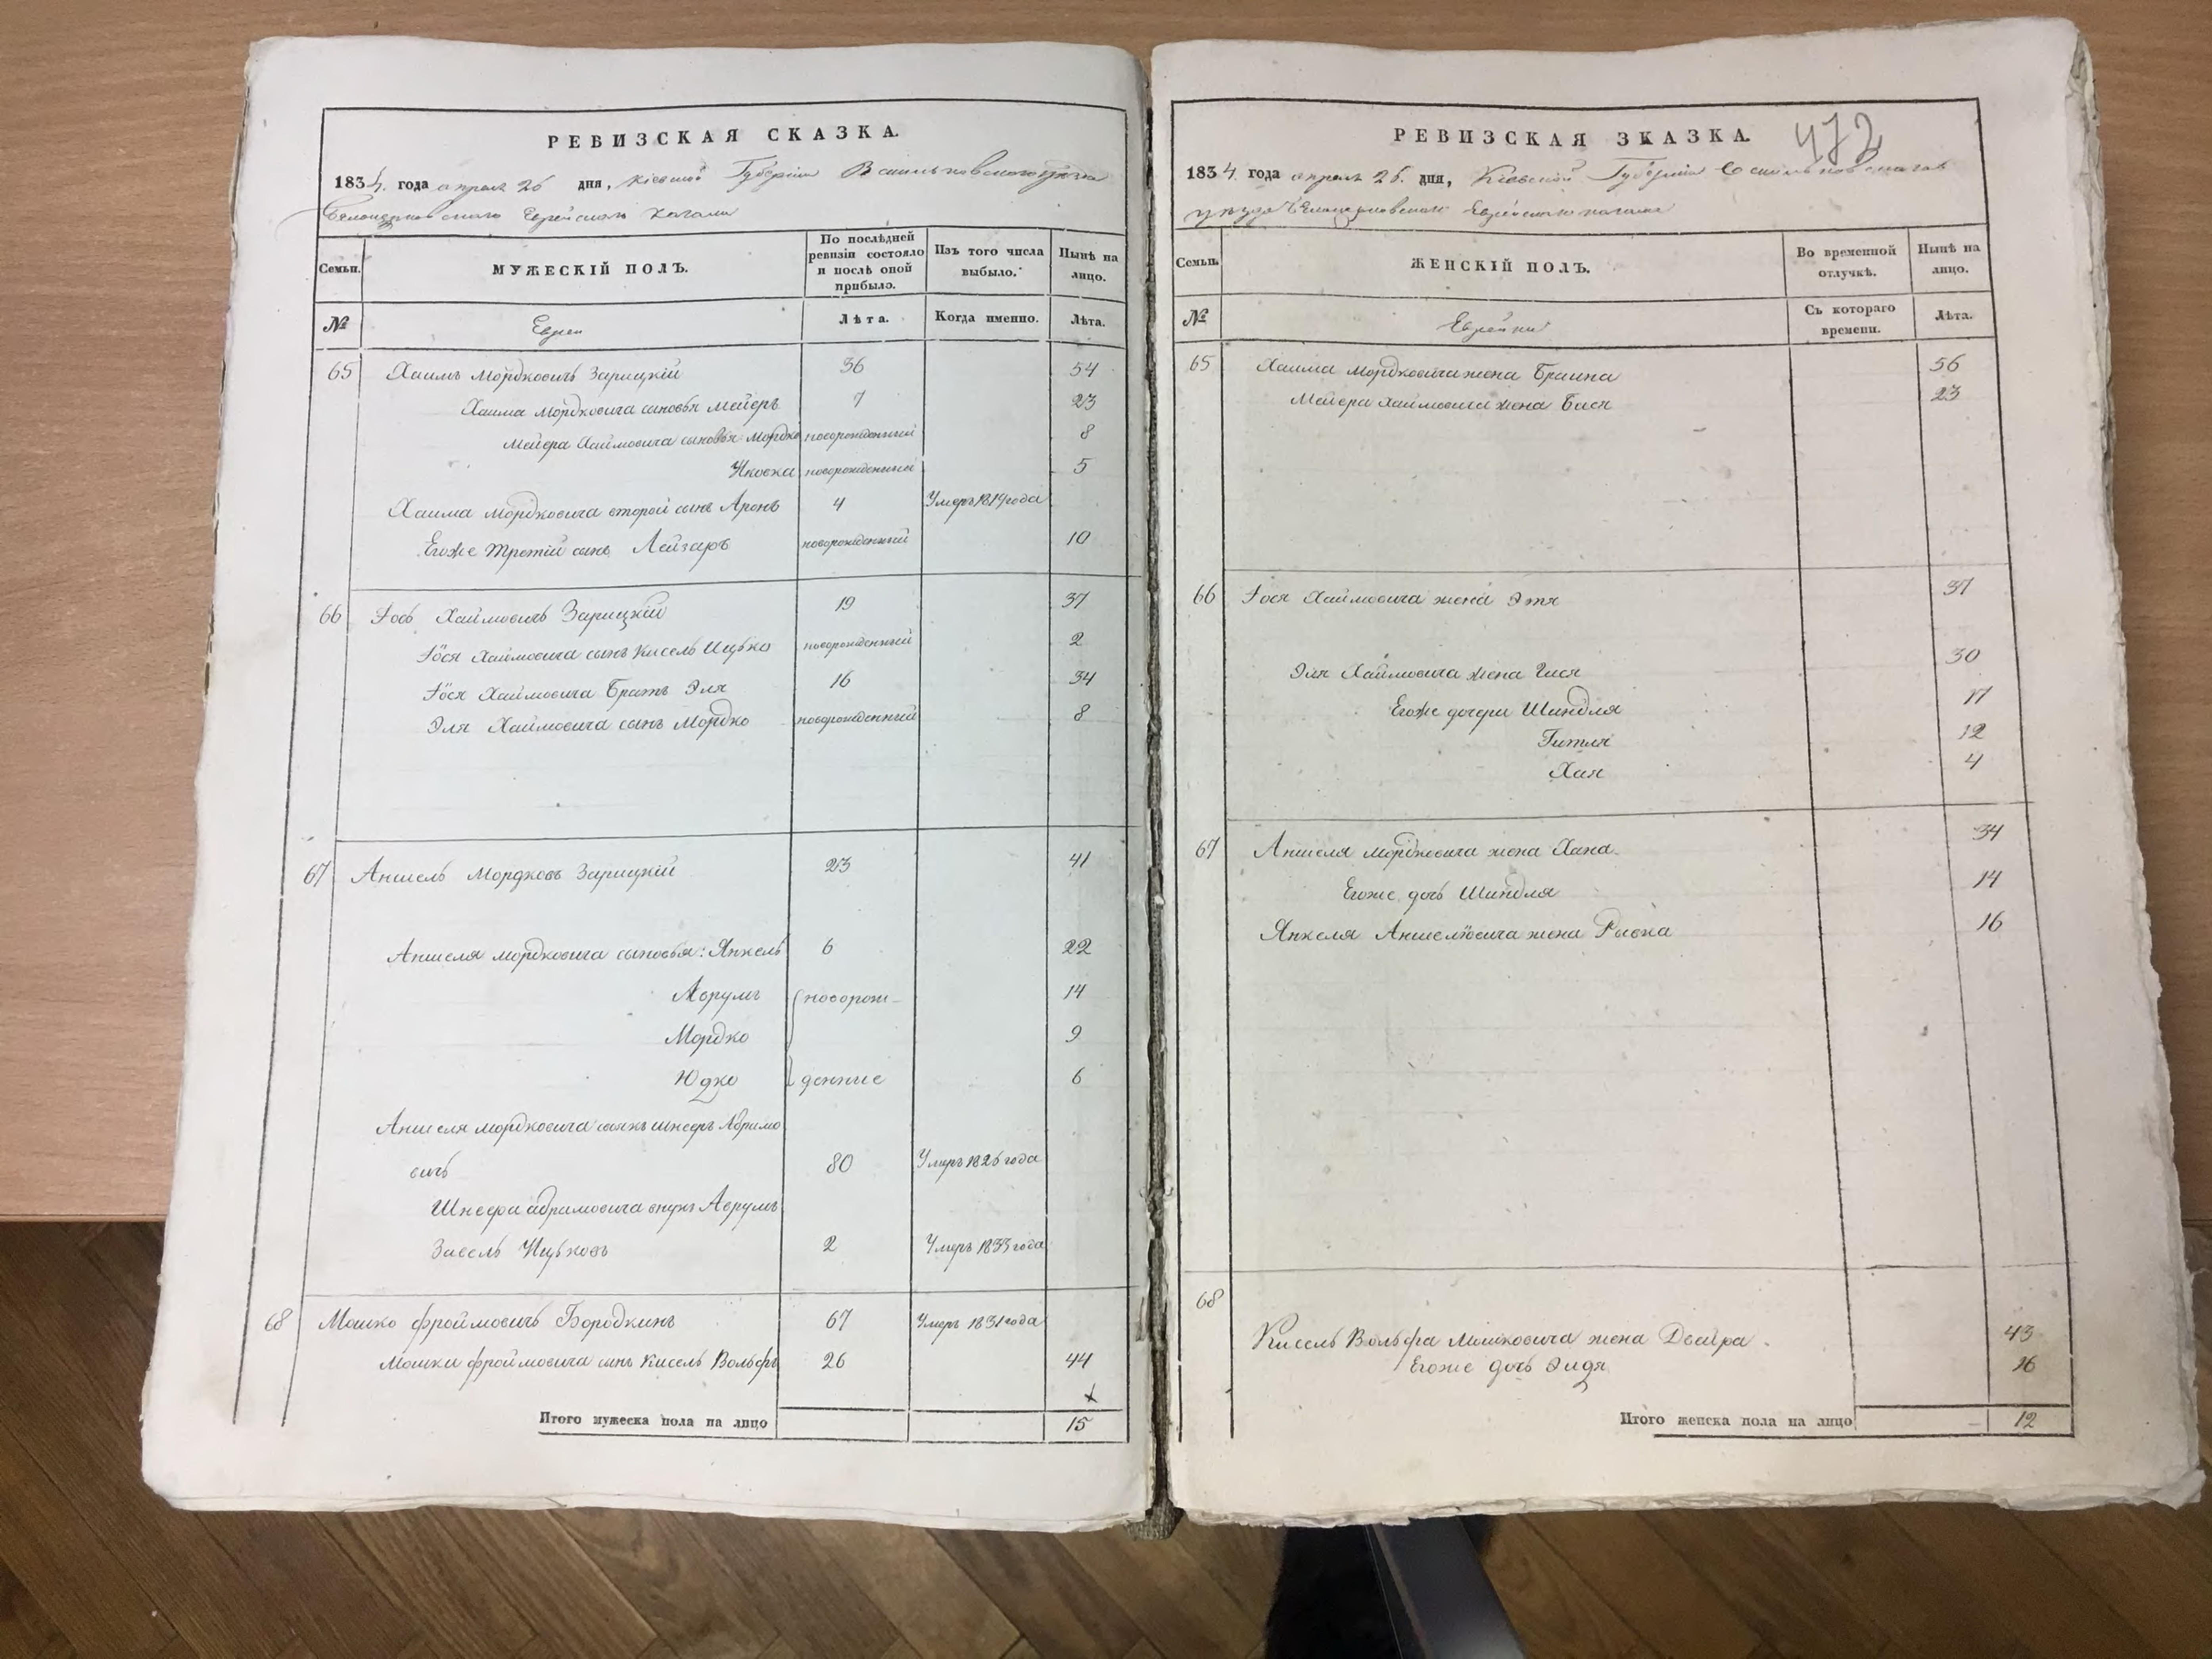 РЕВИЗСКАЯ СКАЗКА.
1834. года апреля 26 дня, Кіевской Губерніи Васильковского уезда
Белоцерковского Еврейского кагала
Семьи.
МУЖЕСКІЙ ПОЛЪ.
По послѣдней ревизіи состояло и послѣ оной прибыло.
Изъ того числа выбыло.
Нынѣ на лицо.
№
Евреи
Лѣта.
Когда именно.
Лѣта.
65 Хаимъ Мордковичъ Зарицкій 36 54
Хаима Мордковича сыновья Мейеръ 7 23
Мейера Хаймовича сыновья Мордко новорожденный 8
Ицковка новорожденный 5
Хаима Мордковича второй сынъ Аронъ 4 Умеръ 1819 года
Егоже третій сынъ Лейзеръ новорожденный 10
66 Іось Хаймовичъ Зарицкій 19 37
Іося Хаймовича сынъ Кисель Ицько новорожденный 2
Іося Хаймовича Братъ Эля 16 34
Эля Хаймовича сынъ Мордко новорожденный 8
67 Аншель Мордковъ Зарицкій 23 41
Аншеля Мордковича сыновья: Янкель 6 22
Аврумъ новорож- 14
Мордко 9
Юдко денные 6
Аншеля Мордковича Шнееръ Абрамо
вичъ 80 Умеръ 1826 года
Шнеера абрамовича внукъ Аврумъ
Зисель Ицьковъ 2 Умеръ 1833 года
68 Мошко Фроймовичъ Бородкинъ 67 Умеръ 1831 года
Мошки Фроймовича сынъ Кисель Вольфъ 26 44
Итого мужеска пола на лицо 15
472
РЕВИЗСКАЯ ЗКАЗКА.
1834 года апреля 26. дня, Кіевской Губерніи Васильковскаго
уезда Белоцерковского Еврейского кагала
Семьи.
ЖЕНСКІЙ ПОЛЪ.
Во временной отлучкѣ.
Нынѣ на лицо.
№
Еврейки
Съ котораго времени.
Лѣта.
65 Хаима Мордковича жена Браина 56
Мейера Хаймовича жена Бася 23
66 Іося Хаймовича жена Этя 37
Эля Хаймовича жена Гися 30
Егоже дочери Шиндля 17
Гитля 12
Хая 4
67 Аншеля Мордковича жена Хана 34
Егоже дочь Шиндля 14
Янкеля Аншелевича жена Рывка 16
68
Кисель Вольфа Мошковича жена Двейра 43
Егоже дочь Эидя 16
Итого женска пола на лицо 12